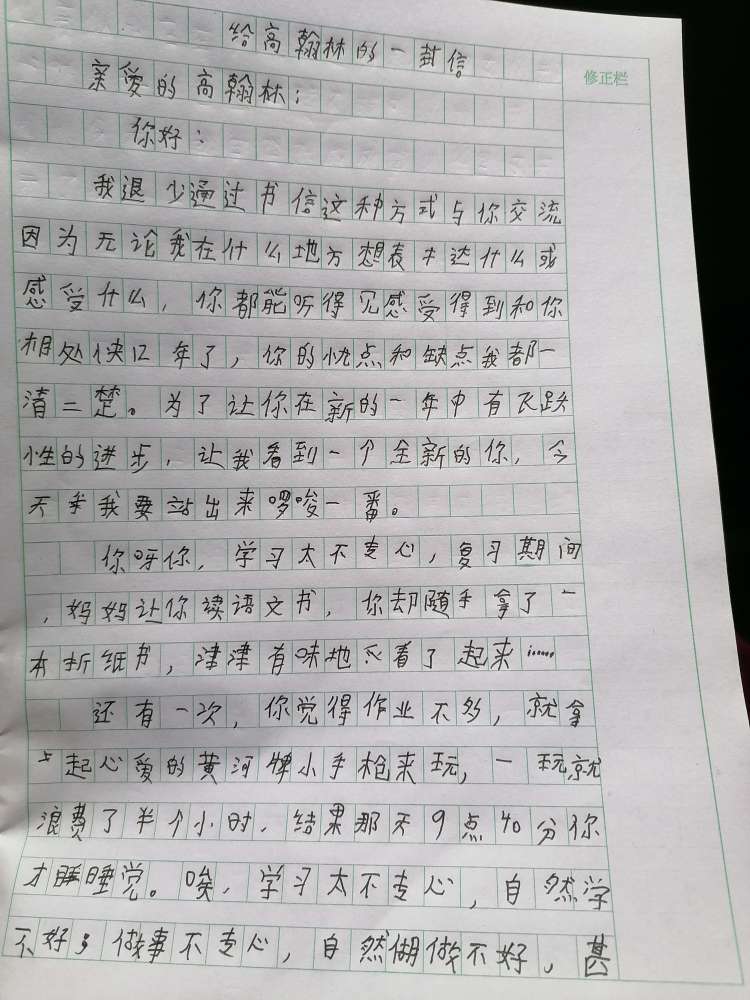 给高翰林的一封信
修正栏
亲爱的高翰林：
你好：
我退少通过书信这种方式与你交流
因为无论我在什么地方想表达什么或
感受什么，你都能听得见感受得到和你
相处快12年了，你的优点和缺点我都一
清二楚。为了让你在新的一年中有飞跃
性的进步，让我看到一个全新的你，今
天我要站出来啰唆一番。
你呀你，学习太不专心，复习期间
，妈妈让你读语文书，你却随手拿了一
本折纸书，津津有味地看了起来……
还有一次，你觉得作业不多，就拿
起心爱的黄河牌小手枪来玩，一玩就
浪费了半个小时，结果那天9点40分你
才睡觉。唉，学习太不专心，自然学
不好；做事不专心，自然做不好，甚